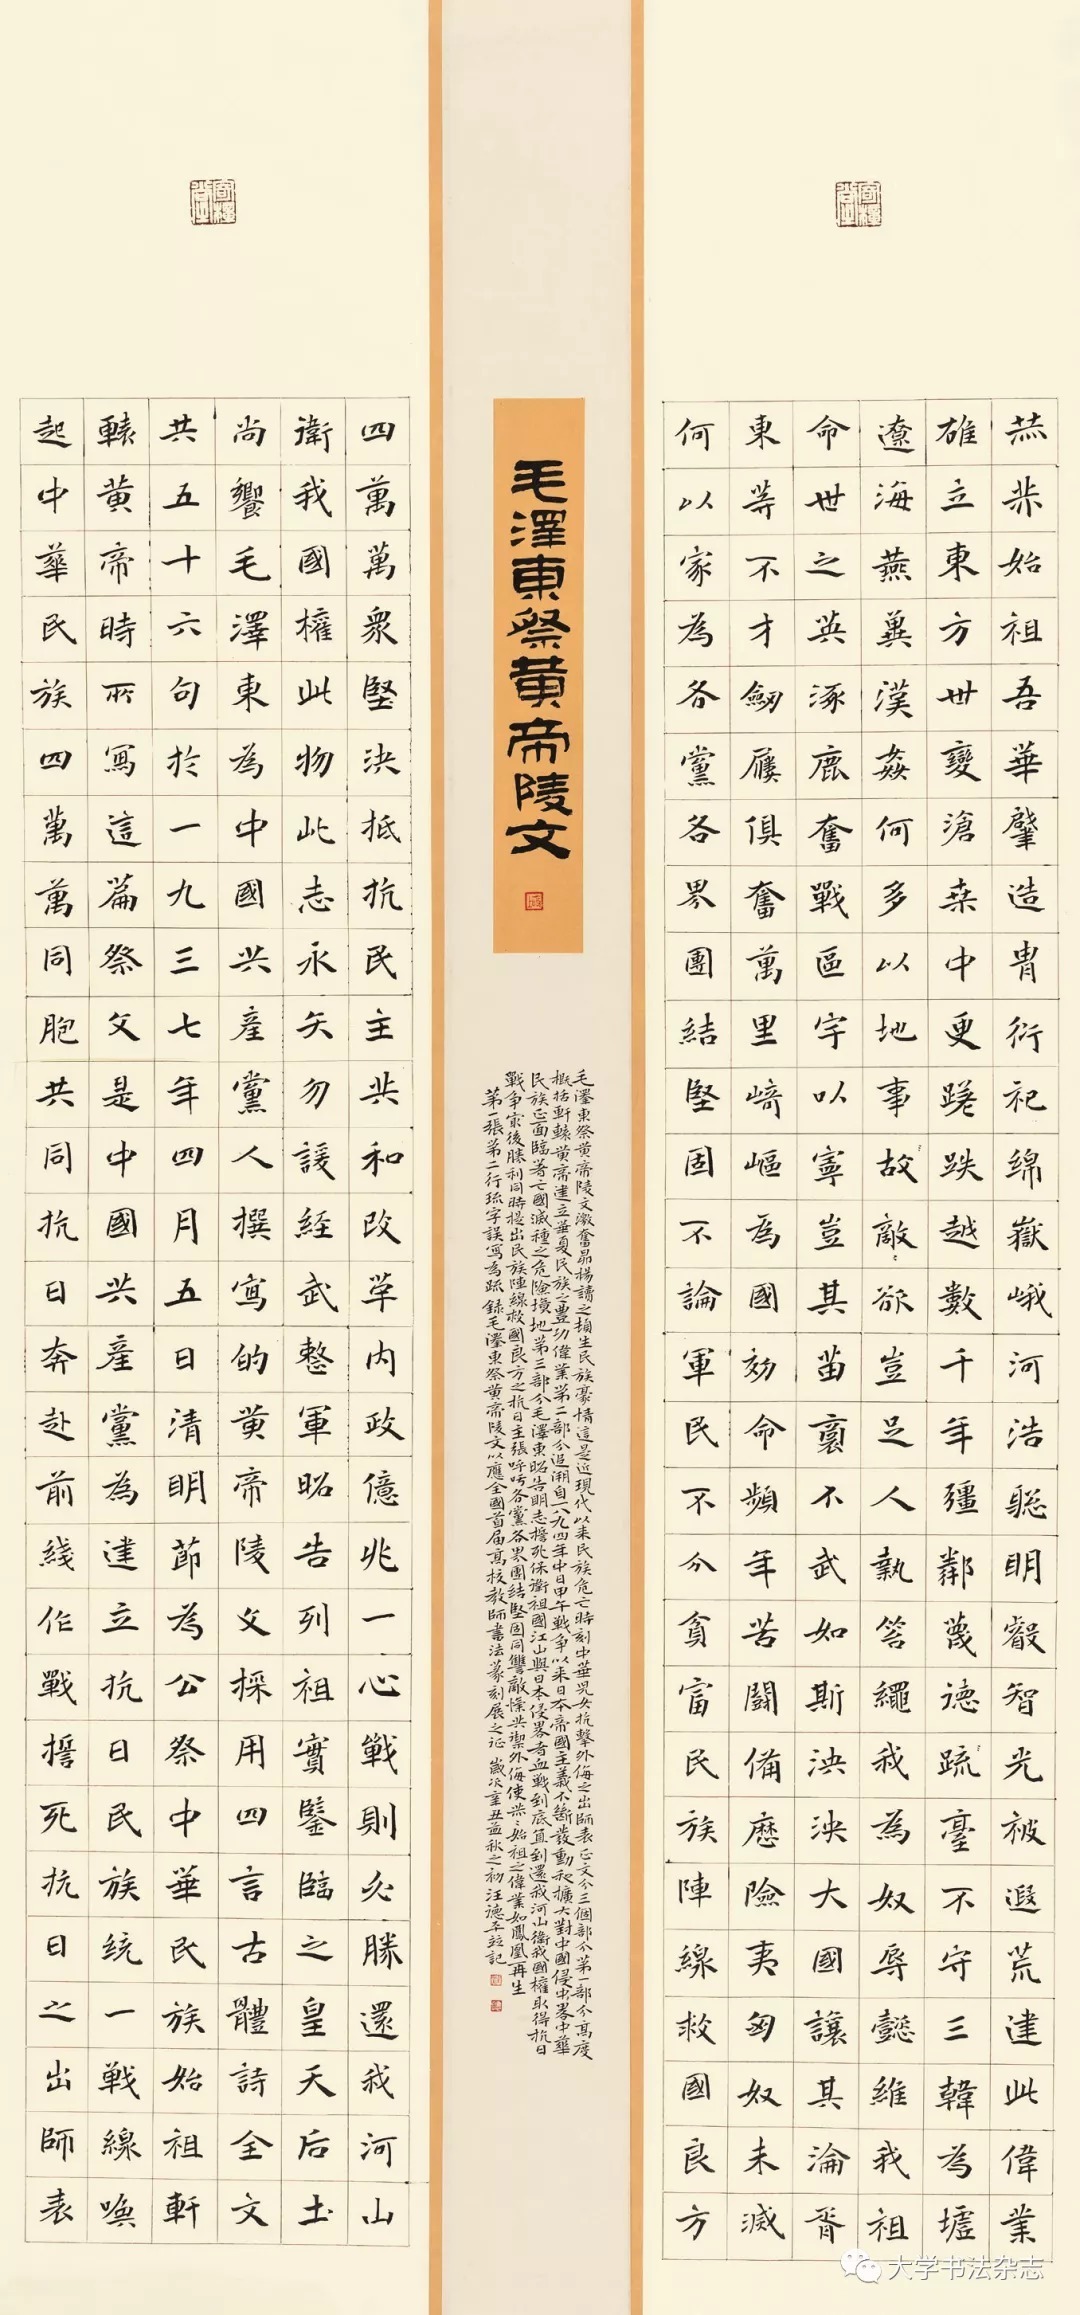 赫赫始祖吾華肇造冑衍祀绵嶽峨河浩聰明睿智光被遐荒建此偉業
雄立東方世變滄桑中更蹉跌越數千年疆鄰蔑德疏臺不守三韓為墟
遼海燕冀漢姦何多以地事故敵欲豈足人執笞繩我為奴辱懿維我祖
命世之英涿鹿奮戰區宇以寧豈其苗裔不武如斯泱泱大國讓其淪胥
東等不才劍屨俱奮萬里崎嶇為國効命頻年苦鬪備歷險夷匈奴未滅
何以家為各黨各界團結堅固不論軍民不分貧富民族陣線救國良方
毛澤東祭黄帝陵文
毛澤東祭黄帝陵文激奮昂揚讀之頓生民族豪情這是近現代以来民族危亡時刻中華兒女抗擊外侮之出師表正文分三個部分第一部分高度
概括軒轅黄帝建立華夏民族之豐功偉業第二部分追溯自一八九四年中日甲午戰争以来日本帝國主義不斷發動和擴大對中國侵略中華
民族正面臨著亡國滅種之危險境地第三部分毛澤東昭告明志誓死保衛祖國江山與日本侵略者血戰到底直到還我河山衛我國權取得抗日
戰争最後勝利同時提出民族陣線救國良方之抗日主張呼吁各黨各界團結堅固同讐敵愾共禦外侮使共共始祖之偉業如鳳凰再生
第一張第二行琉字誤寫為疏 録毛澤東祭黄帝陵文以應全國首届高校教師書法篆刻展之征 歲次辛丑孟秋之初汪德平並記
四萬萬衆堅決抵抗民主共和改革内政億兆一心戰則必勝還我河山
衛我國權此物此志永矢勿諼經武整軍昭告列祖實鑒臨之皇天后土
尚饗毛澤東為中國共產黨人撰寫的黄帝陵文採用四言古體詩全文
共五十六句於一九三七年四月五日清明節為公祭中華民族始祖軒
轅黄帝時所寫這篇祭文是中國共產黨為建立抗日民族统一戰線喚
起中華民族四萬萬同胞共同抗日奔赴前綫作戰誓死抗日之出師表
大学书法杂志